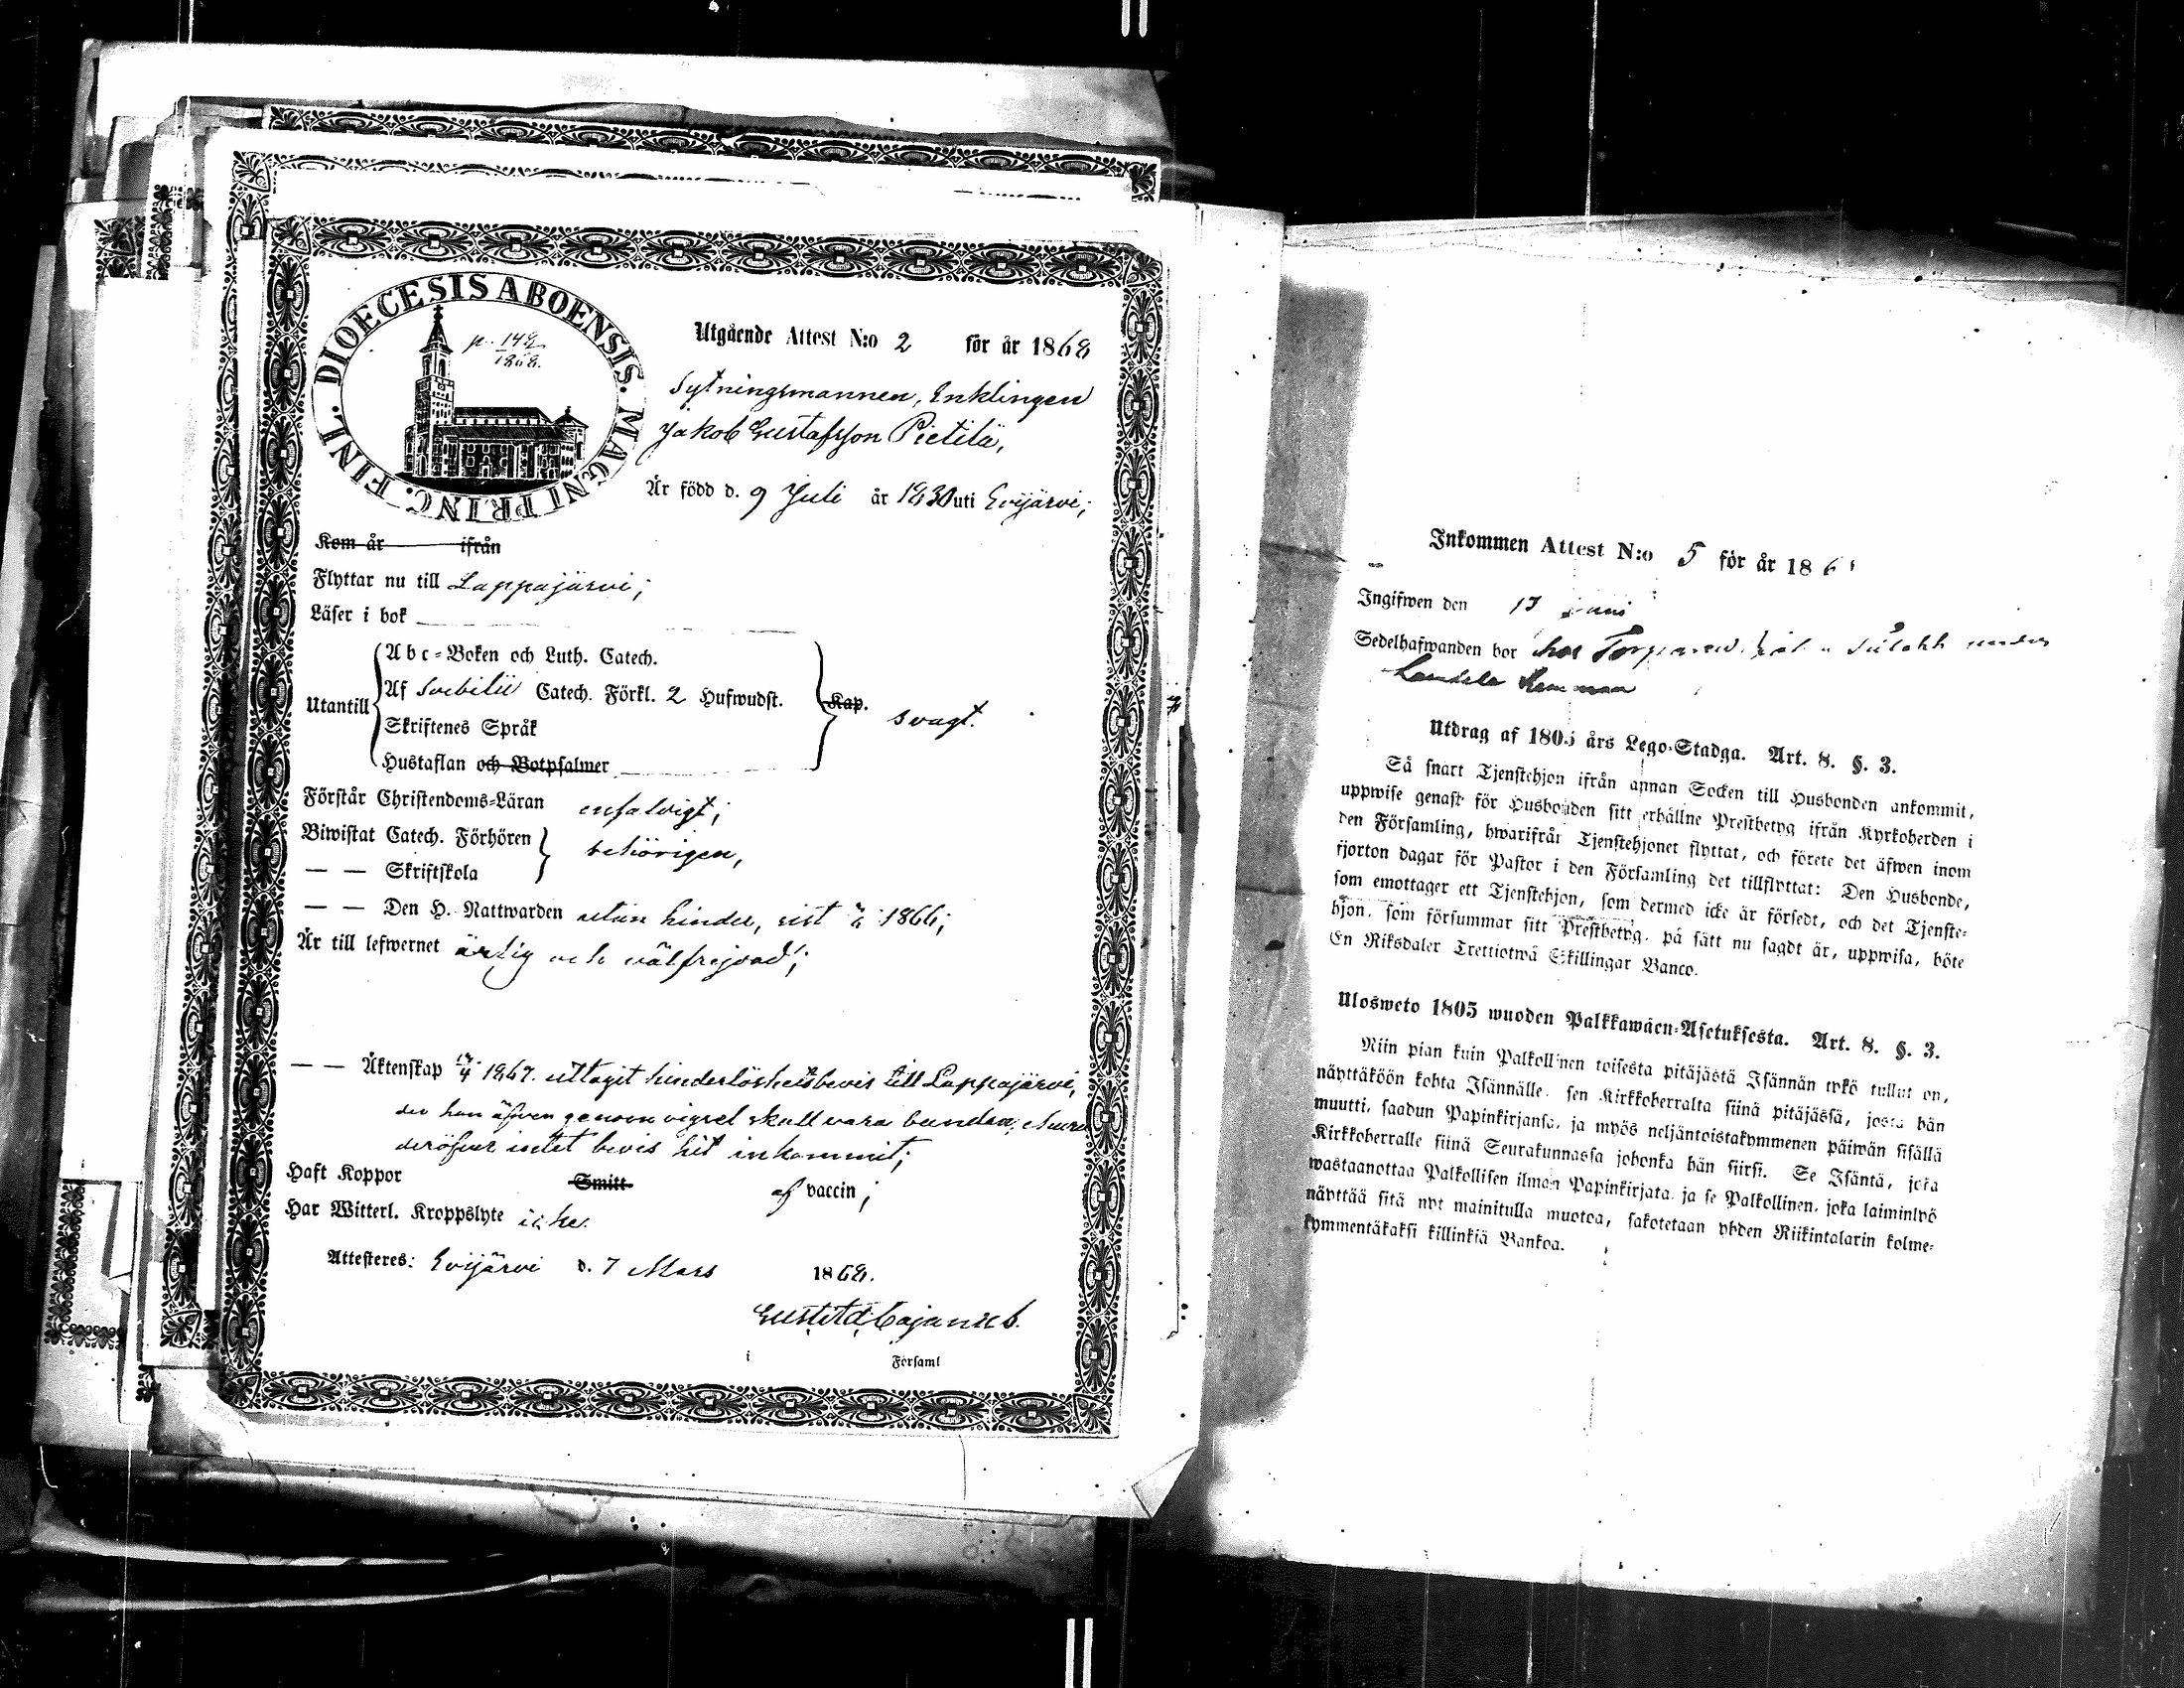 DIOECESIS ABOENSIS. MAGNI PRINC. FINL.
p. 148
1868.
Utgående Attest N:o 2 för år 1868
Sytningsmannen, Enklingen
Jakob Gustafsson Pietilä,
Är född d. 9 Juli år 1830 uti Evijärvi;
Kom år ifrån
Flyttar nu till Lappajärvi;
Läser i bok
Utantill
Abc-Boken och Luth. Catech.
Af Svebilii Catech. Förkl. 2 Hufwudst.
Skriftenes Språk
Hustaflan och Botpsalmer
Kap. svagt.
Förstår Christendoms-Läran enfaldigt;
Biwistat Catech. Förhören
— — Skriftskola
behörigen,
— — Den H. Nattwarden utan hinder, sist 1866;
Är till lefwernet ärlig och välfrejdad;
— — Äktenskap 1867. uttagit hinderlöshetsbevis till Lappajärvi,
der han äfven genom vigsel skall vara bunden,
deröfver intet bevis hit inkommit;
Haft Koppor Smitt- af vaccin;
Har Witterl. Kroppslyte icke.
Attesteres: Evijärvi d. 7 Mars 1868.
Gust. Ad. Cajanus.
i Församl
Inkommen Attest N:o 5 för år 186
Ingifwen den 17 juni
Sedelhafwanden bor hos under
Utdrag af 1805 års Lego-Stadga. Art. 8. §. 3.
Så snart Tjenstehjon ifrån annan Socken till Husbonden ankommit,
uppwise genast för Husbonden sitt erhållne Prestbetyg ifrån Kyrkoherden i
den Församling, hwarifrån Tjenstehjonet flyttat, och förete det äfwen inom
fjorton dagar för Pastor i den Församling det tillflyttat: Den Husbonde,
som emottager ett Tjenstehjon, som dermed icke är försedt, och det Tjenste-
hjon, som försummar sitt Prestbetyg, på sätt nu sagdt är, uppwisa, böte
En Riksdaler Trettiotwå Skillingar Banco.
Ulosweto 1805 wuoden Palkkawäen-Asetuksesta. Art. 8. §. 3.
Niin pian kuin Palkollinen toisesta pitäjästä Isännän tykö tullut on,
näyttäköön kohta Isännälle, sen Kirkkoherralta siinä pitäjässä, josta hän
muutti, saadun Papinkirjansa, ja myös neljäntoistakymmenen päiwän sisällä
Kirkkoherralle siinä Seurakunnassa johonka hän siirsi. Se Isäntä, joka
wastaanottaa Palkollisen ilman Papinkirjata, ja se Palkollinen, joka laiminlyö
näyttää sitä nyt mainitulla muotoa, sakotetaan yhden Riikintalarin kolme-
kymmentäkaksi killinkiä Bankoa.